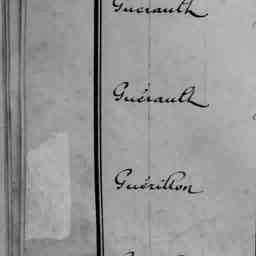 Guérault
Guérault
Guérillon